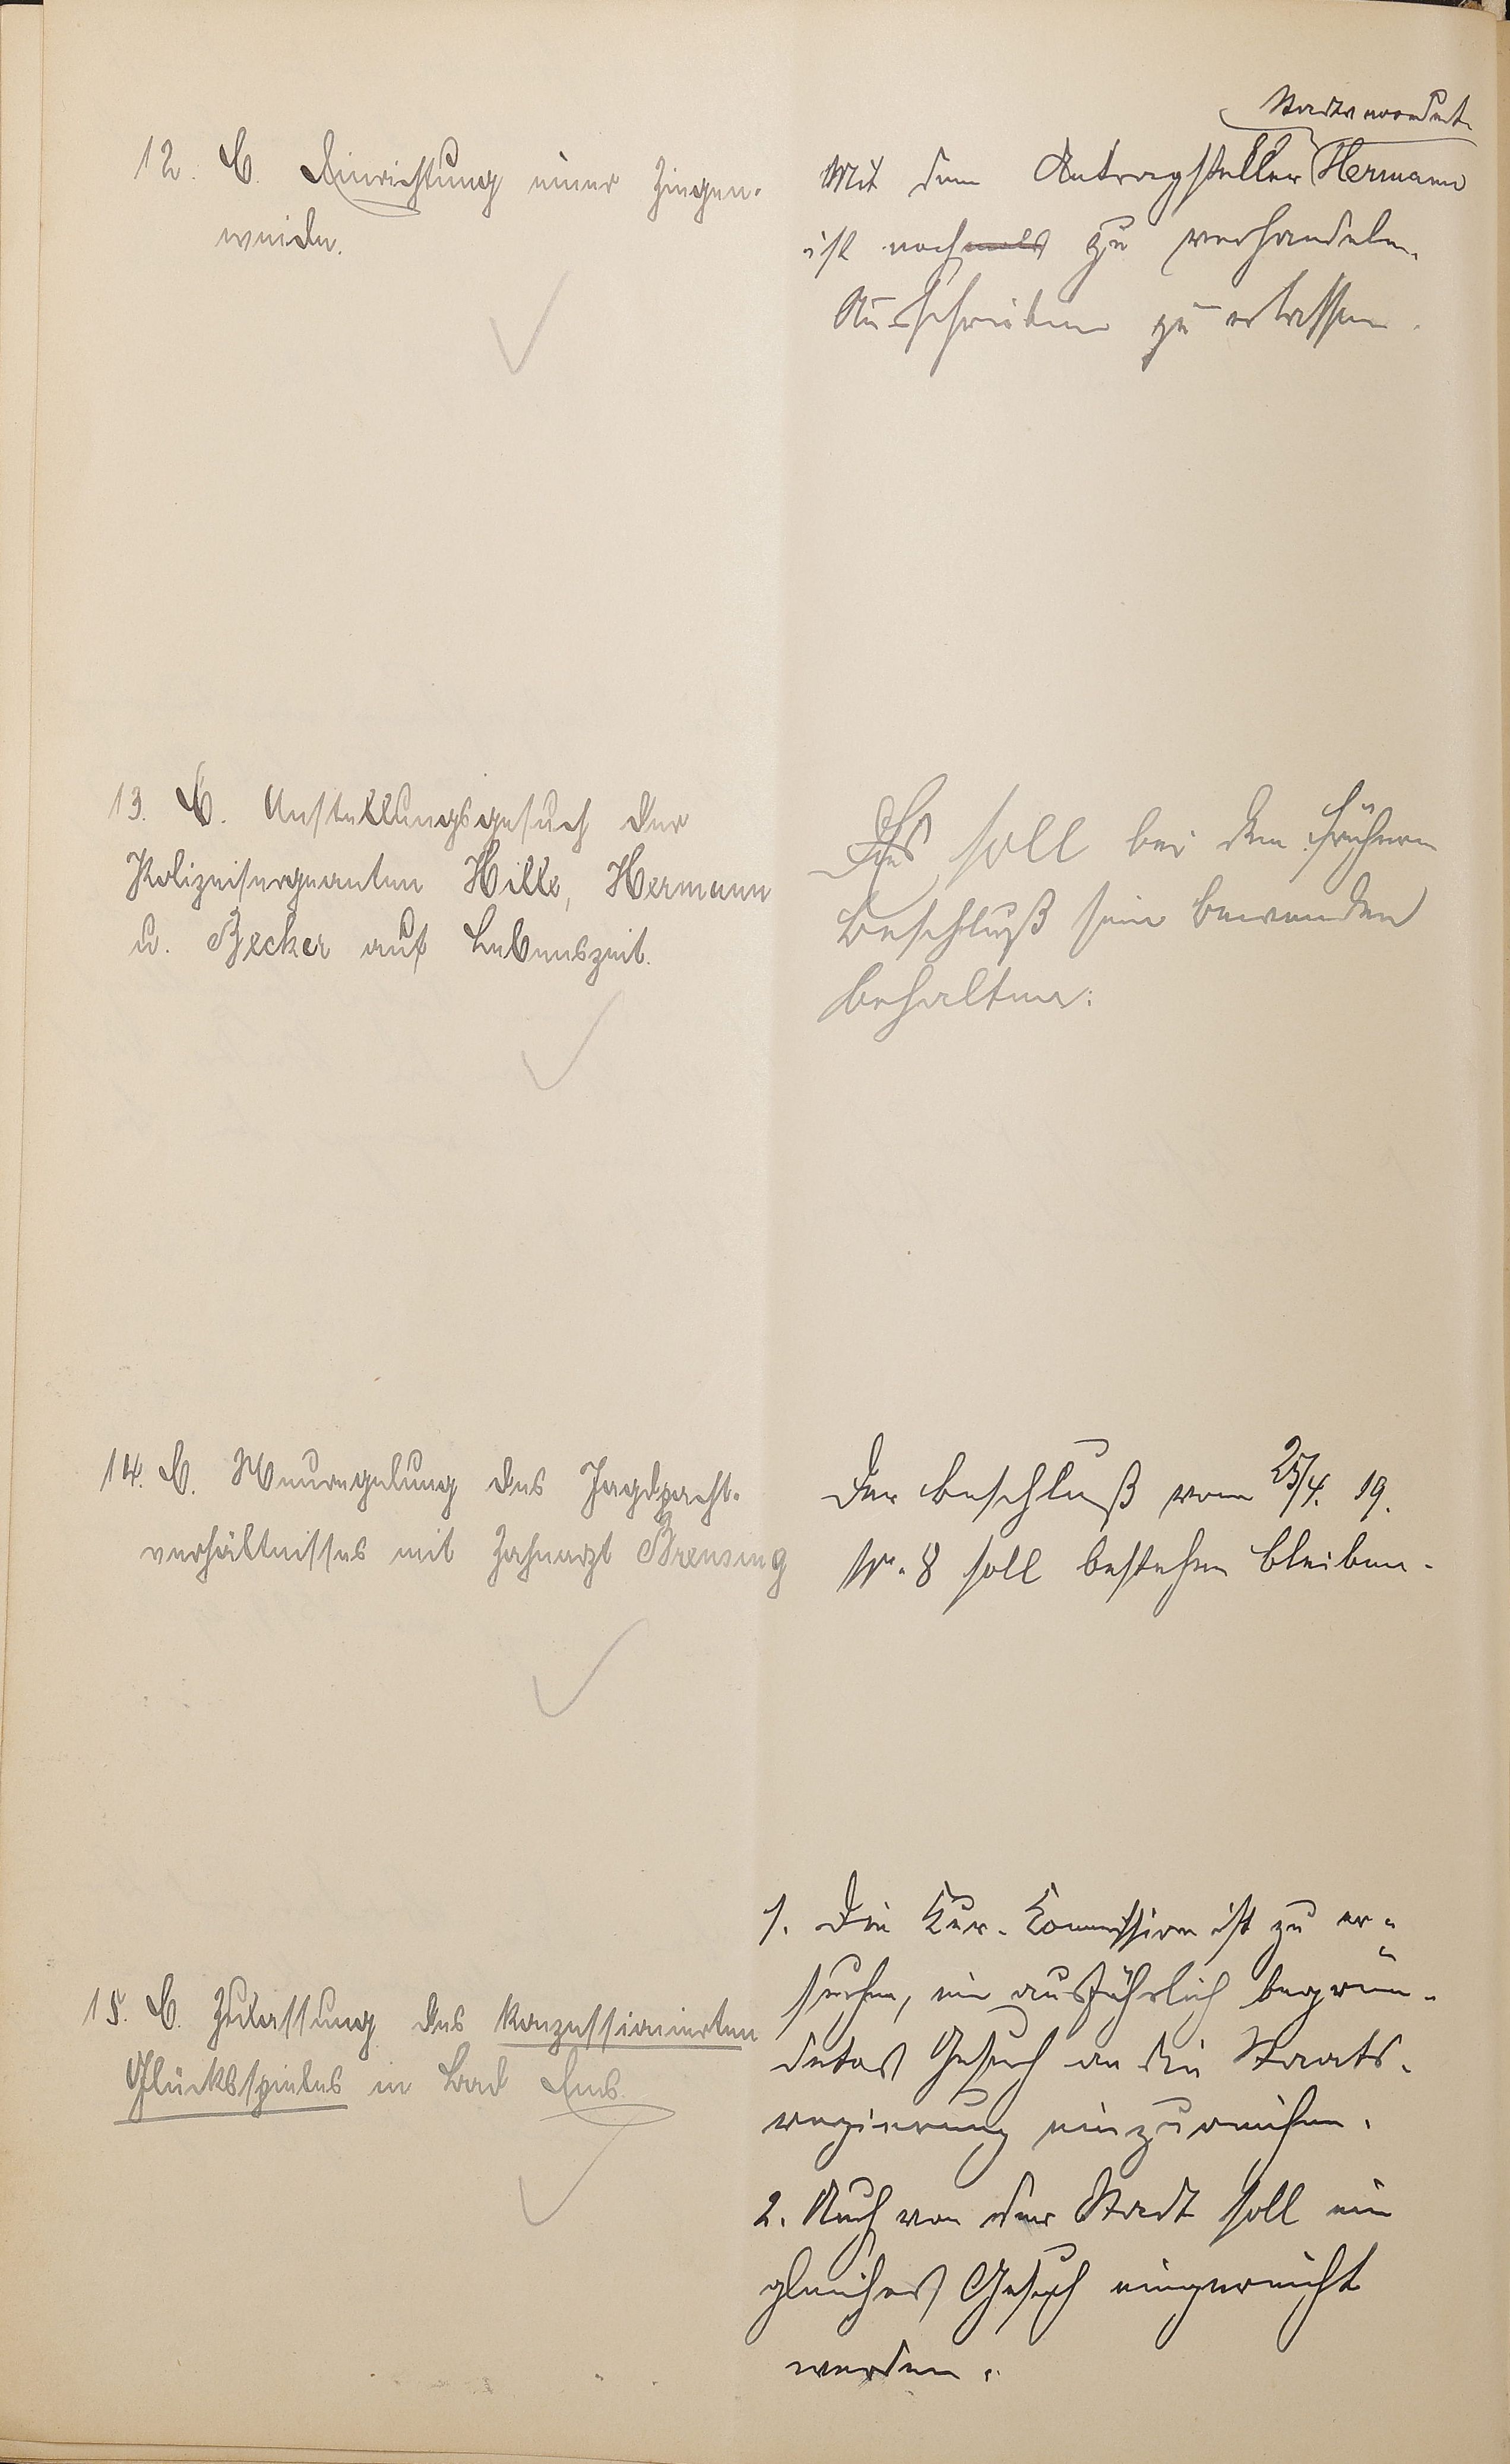 12. B. Einrichtung einer Ziegen-
weide.
Stadtverordnet.
Mit dem Antragsteller Hermann
ist nochmals zu verhandeln.
Ausschreiben zu erlassen.
13. B. Anstellungsgesuch der
Polizeisergeanten Hille, Hermann
u. Becker auf Lebenszeit.
Es soll bei dem frühern
Beschluß sein bewenden
behalten.
14. B. Neuregelung des Jagdpacht-
verhältnisses mit Zahnarzt Brensing
Der Beschluß vom 25/4. 19.
Nr. 8 soll bestehen bleiben.
15. B. Zulassung des konzessionierten
Glücksspieles in Bad Ems.
1. Die Kur-Commission ist zu er-
suchen, ein ausführlich begrün-
detes Gesuch an die Staats-
regierung einzureichen.
2. Auch von der Stadt soll ein
gleiches Gesuch eingereicht
werden.